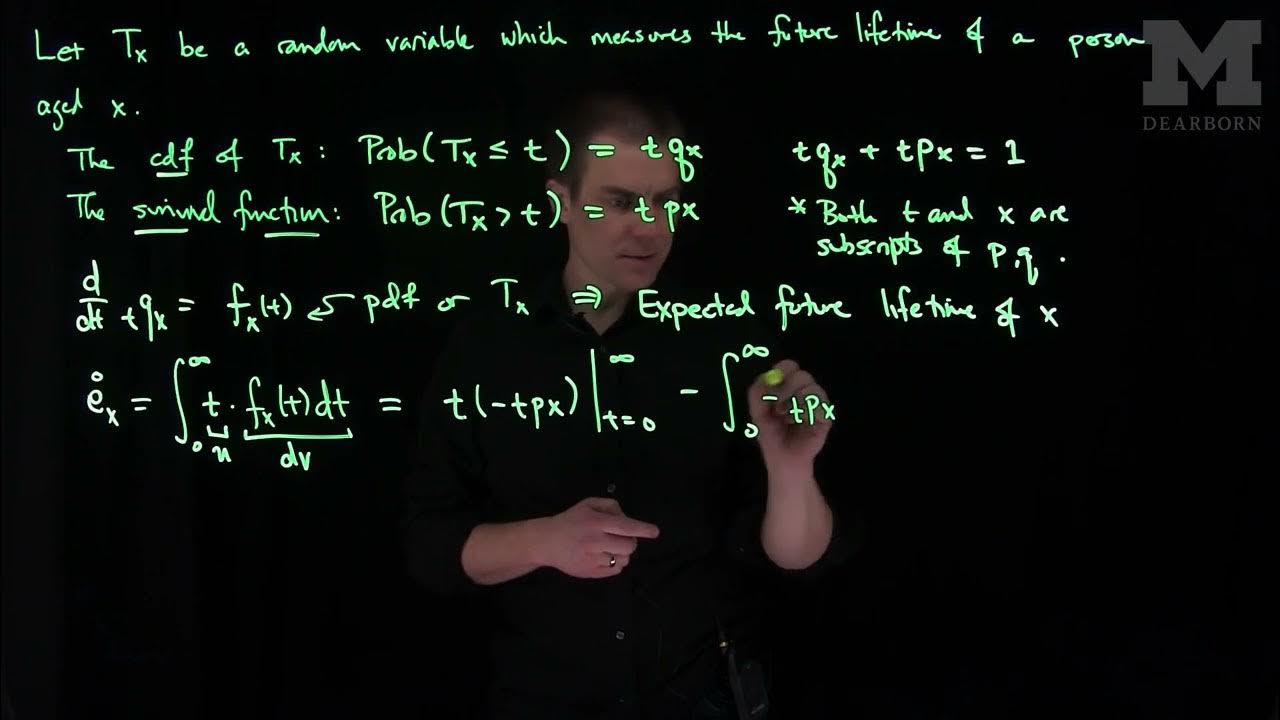 Let Tx be a random variable which measures the future lifetime of a person
aged x.
M
DEARBORN
The cdf of Tx: Prob(Tx ≤ t) = tqx
tqx + tpx = 1
The survival function: Prob(Tx > t) = tpx
* Both t and x are
subscripts of p,q.
d/dt tqx = fx(t) ← pdf or Tx ⇒ Expected future lifetime of x
e̊x = ∫₀^∞ t · fx(t)dt = t(-tpx) |t=0^∞ - ∫₀^∞ - tpx
u dv